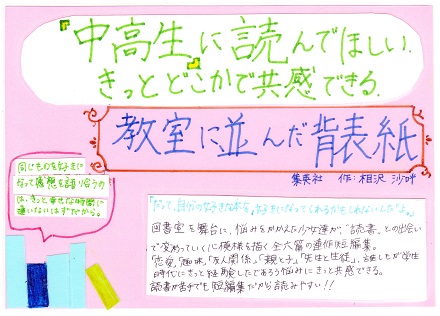 『中高生』に読んでほしい.
きっとどこかで共感できる.
教室に並んだ背表紙
集英社 作:相沢 沙呼
同じものを好きに
なって感想を語り合うの
は、きっと幸せな時間に
違いないはずだから。
「だって、自分の好きな本を、好きになってくれるかもしれないんだよ。」
図書室を舞台に、悩みをかかえた少女達が、"読書"との出会い
で変わっていく心模様を描く全六篇の連作短編集。
「恋愛」「趣味」「友人関係」「親と子」「先生と生徒」、誰しもが学生
時代にきっと経験したであろう悩みにきっと共感できる。
読書が苦手でも短編集だから読みやすい!!